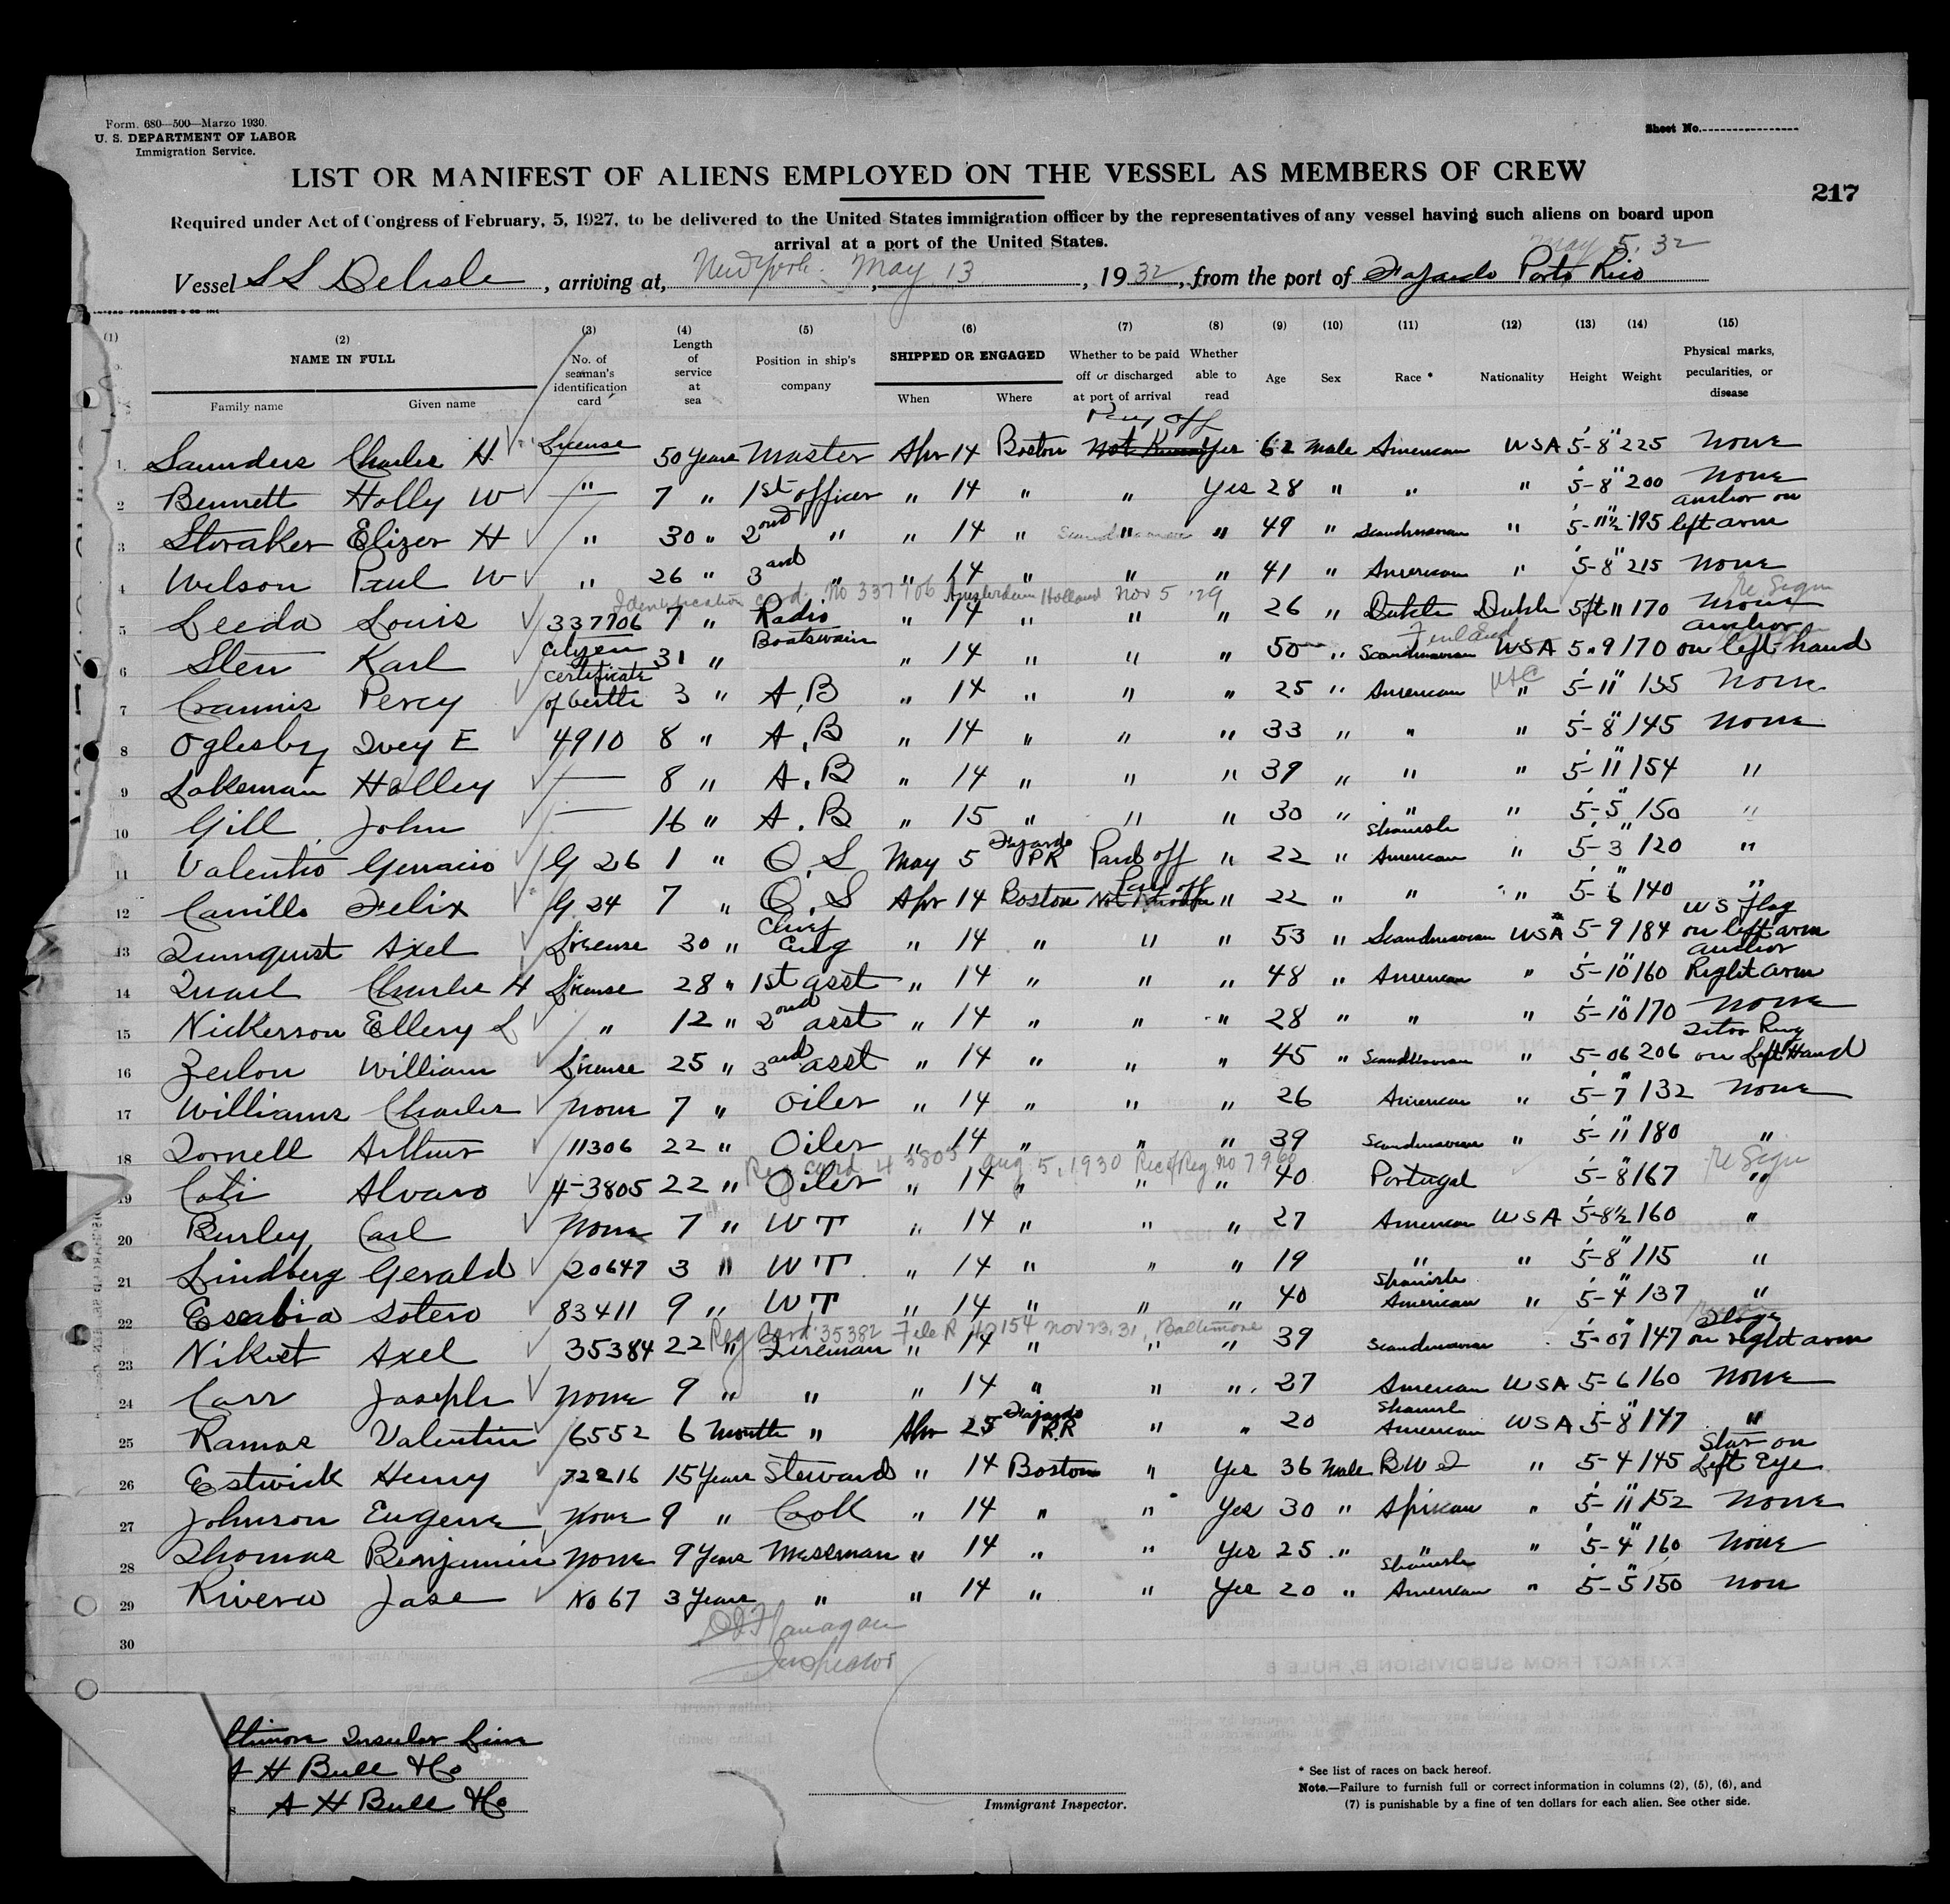 Form. 680—500—Marzo 1930.
U. S. DEPARTMENT OF LABOR
Immigration Service.
Sheet No.
LIST OR MANIFEST OF ALIENS EMPLOYED ON THE VESSEL AS MEMBERS OF CREW
217
Required under Act of Congress of February, 5, 1927, to be delivered to the United States immigration officer by the representatives of any vessel having such aliens on board upon
arrival at a port of the United States.
May 5, 32
Vessel SS Delisle, arriving at, New York. May 13, 1932, from the port of Fajardo Porto Rico
(1) (2) (3) (4) (5) (6) (7) (8) (9) (10) (11) (12) (13) (14) (15)
NAME IN FULL Family name Given name
No. of seaman's identification card
Length of service at sea
Position in ship's company
SHIPPED OR ENGAGED When Where
Whether to be paid off or discharged at port of arrival
Whether able to read
Age Sex Race * Nationality Height Weight
Physical marks, pecularities, or disease
Pay off
1 Saunders Charles H License 50 years Master Apr 14 Boston Yes 62 Male American USA 5-8 225 None
2 Bennett Holly W " 7 " 1st officer " 14 " " Yes 28 " " " 5-8 200 None
3 Storaker Elizer H " 30 " 2ond " " 14 " " " 49 " Scandinavian " 5-11½ 195 anchor on left arm
4 Wilson Paul W " 26 " 3ard " " 14 " " " 41 " American " 5-8 215 None
Identification card No 337706 Amsterdam Holland Nov 5 '29
5 Leeda Louis 337706 7 " Radio " 14 " " " 26 " Dutch Dutch 5ft 11 170 None
6 Sten Karl Citizen 31 " Boatswain " 14 " " " 50 " Scandinavian USA 5-9 170 anchor on left hand
Finland
7 Crannis Percy Certificate of berth 3 " A.B " 14 " " " 25 " American " 5-11 155 None
8 Oglesby Ivey E 4910 8 " A.B " 14 " " " 33 " " " 5-8 145 None
9 Lakeman Holley — 8 " A.B " 14 " " " 39 " " " 5-11 154 "
10 Gill John — 16 " A.B " 15 " " " 30 " " " 5-5 150 "
11 Valentio Gerracio G 26 1 " O.S May 5 Fajardo PR Paid off " 22 " Spanish American " 5-3 120 "
12 Carrillo Felix G 24 7 " O.S Apr 14 Boston Paid off " 22 " " " 5-6 140 "
13 Axel License 30 " Chief Eng " 14 " " " 53 " Scandinavian USA 5-9 184 US Flag on left arm
14 Charles H License 28 " 1st asst " 14 " " " 48 " American " 5-10 160 anchor Right arm
15 Nickerson Ellery L " 12 " 2ond asst " 14 " " " 28 " " " 5-10 170 None
16 Zeilon William License 25 " 3ard asst " 14 " " " 45 " Scandinavian " 5-06 206 Ring on Left Hand
17 Williams Charles None 7 " Oiler " 14 " " " 26 American " 5-7 132 None
18 Tornell Arthur 11306 22 " Oiler " 14 " " " 39 Scandinavian " 5-11 180 "
Reg card 43805 Aug 5, 1930 Rec of Reg. No 7960
19 Coti Alvaro 4-3805 22 " Oiler " 14 " " " 40 Portugal 5-8 167 "
20 Burley Carl None 7 " W T " 14 " " " 27 American USA 5-8½ 160 "
21 Lindberg Gerald 20647 3 " W T " 14 " " " 19 " " 5-8 115 "
22 Escabia Sotero 83411 9 " W T " 14 " " " 40 Spanish American " 5-4 137 "
Reg Card 35382 File R 40154 Nov 23, 31, Baltimore
23 Nikvet Axel 35384 22 " Fireman " 14 " " " 39 Scandinavian 5-07 147 on right arm
24 Carr Joseph None 9 " " " 14 " " " 27 American USA 5-6 160 None
25 Ramos Valentin 6552 6 month " Apr 25 Fajardo P.R " " 20 Spanish American USA 5-8 147 "
26 Estwick Henry 72216 15 Years Steward " 14 Boston " Yes 36 Male B W I " 5-4 145 on Left Eye
27 Johnson Eugene None 9 " Cook " 14 " " Yes 30 " African " 5-11 152 None
28 Thomas Benjamin None 9 Years Messman " 14 " " Yes 25 " " " 5-4 160 None
29 Rivera Jose No 67 3 Years " " 14 " " Yes 20 " Spanish American " 5-5 150 Non
30
Flanagan
Inspector
Insular Line
A H Bull & Co
A H Bull & Co
Immigrant Inspector.
* See list of races on back hereof.
Note.—Failure to furnish full or correct information in columns (2), (5), (6), and
(7) is punishable by a fine of ten dollars for each alien. See other side.